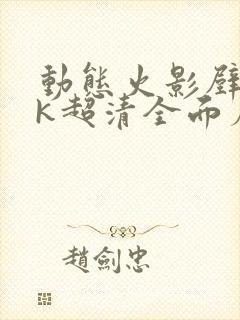 動態火影壁
K超清全而
趙劍忠